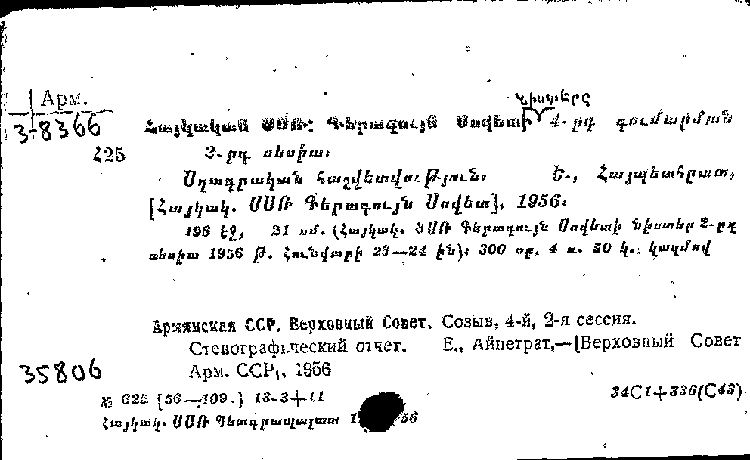 Арм.
Նիստերը
3-8366
Հայկական ՍՍՌ: Գերագույն Սովետի 4-րդ գումարման
Հ25 2-րդ սեսիա:
Սղագրական հաշվետվություն: Ե., Հայպետհրատ,
[Հայկակ. ՍՍՌ Գերագույն Սովետ], 1956:
196 էջ, 21 սմ. (Հայկակ. ՍՍՌ Գերագույն Սովետի նիստեր 2-րդ
սեսիա 1956 Թ. հունվարի 23—24 ին): 300 օր. 4 ռ. 50 կ., կազմով
Армянская ССР. Верховный Совет. Созыв, 4-й, 2-я сессия.
Стенографический отчет. Е., Айпетрат,—[Верховный Совет
35806 Арм. ССР], 1956
№ 622 [56—109.] 13-3+11 34С1+336(С43)
Հայկակ. ՍՍՌ Պետգրապալատ 56